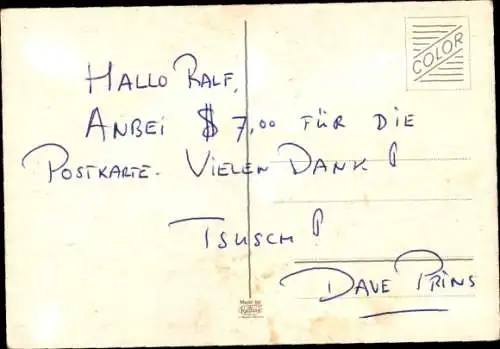 COLOR
HALLO RALF,
ANBEI $ 7,00 FÜR DIE
POSTKARTE. VIELEN DANK!
TSUSCH!
DAVE PRINS